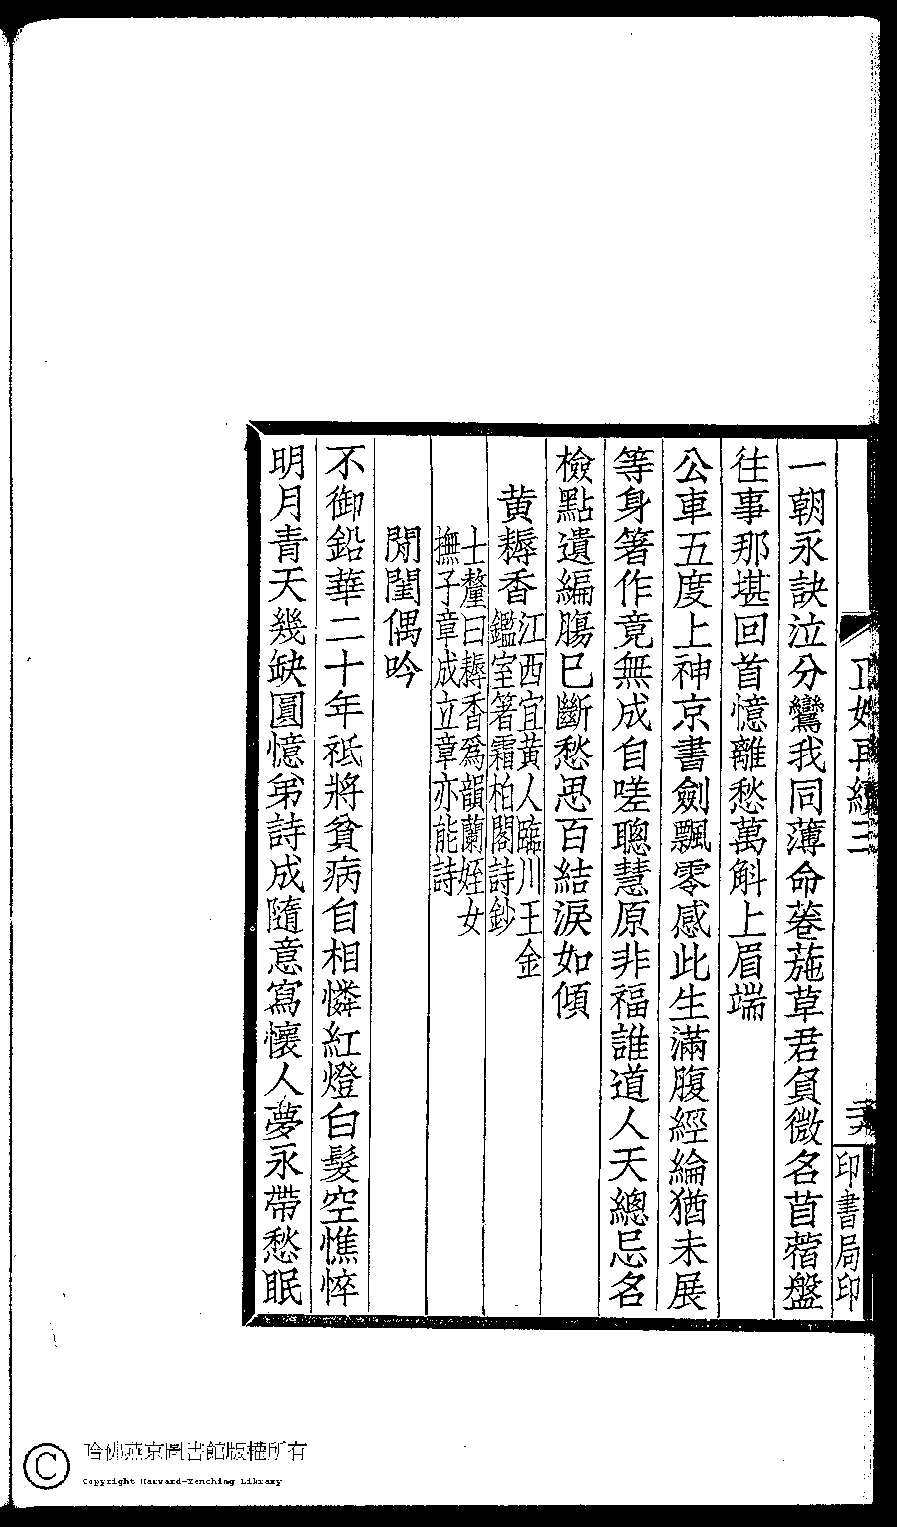 一朝永訣泣分鸞我同薄命菤葹草君負微名苜蓿盤
往事那堪回首憶離愁萬斛上眉端
公車五度上神京書劍飄零感此生滿腹經綸猶未展
等身箸作竟無成自嗟聰慧原非福誰道人天總忌名
檢點遺編腸已斷愁思百結淚如傾
黄耨香
江西宜黄人臨川王金
鑑室箸霜柏閣詩鈔
士釐曰耨香爲韻蘭姪女
撫子章成立章亦能詩
閒閨偶吟
不御鉛華二十年祗將貧病自相憐紅燈白髮空憔悴
明月青天幾缺圓憶弟詩成隨意寫懷人夢永帶愁眠
印書局印
哈佛燕京圖書館版權所有
Copyright Harvard-Yenching Library